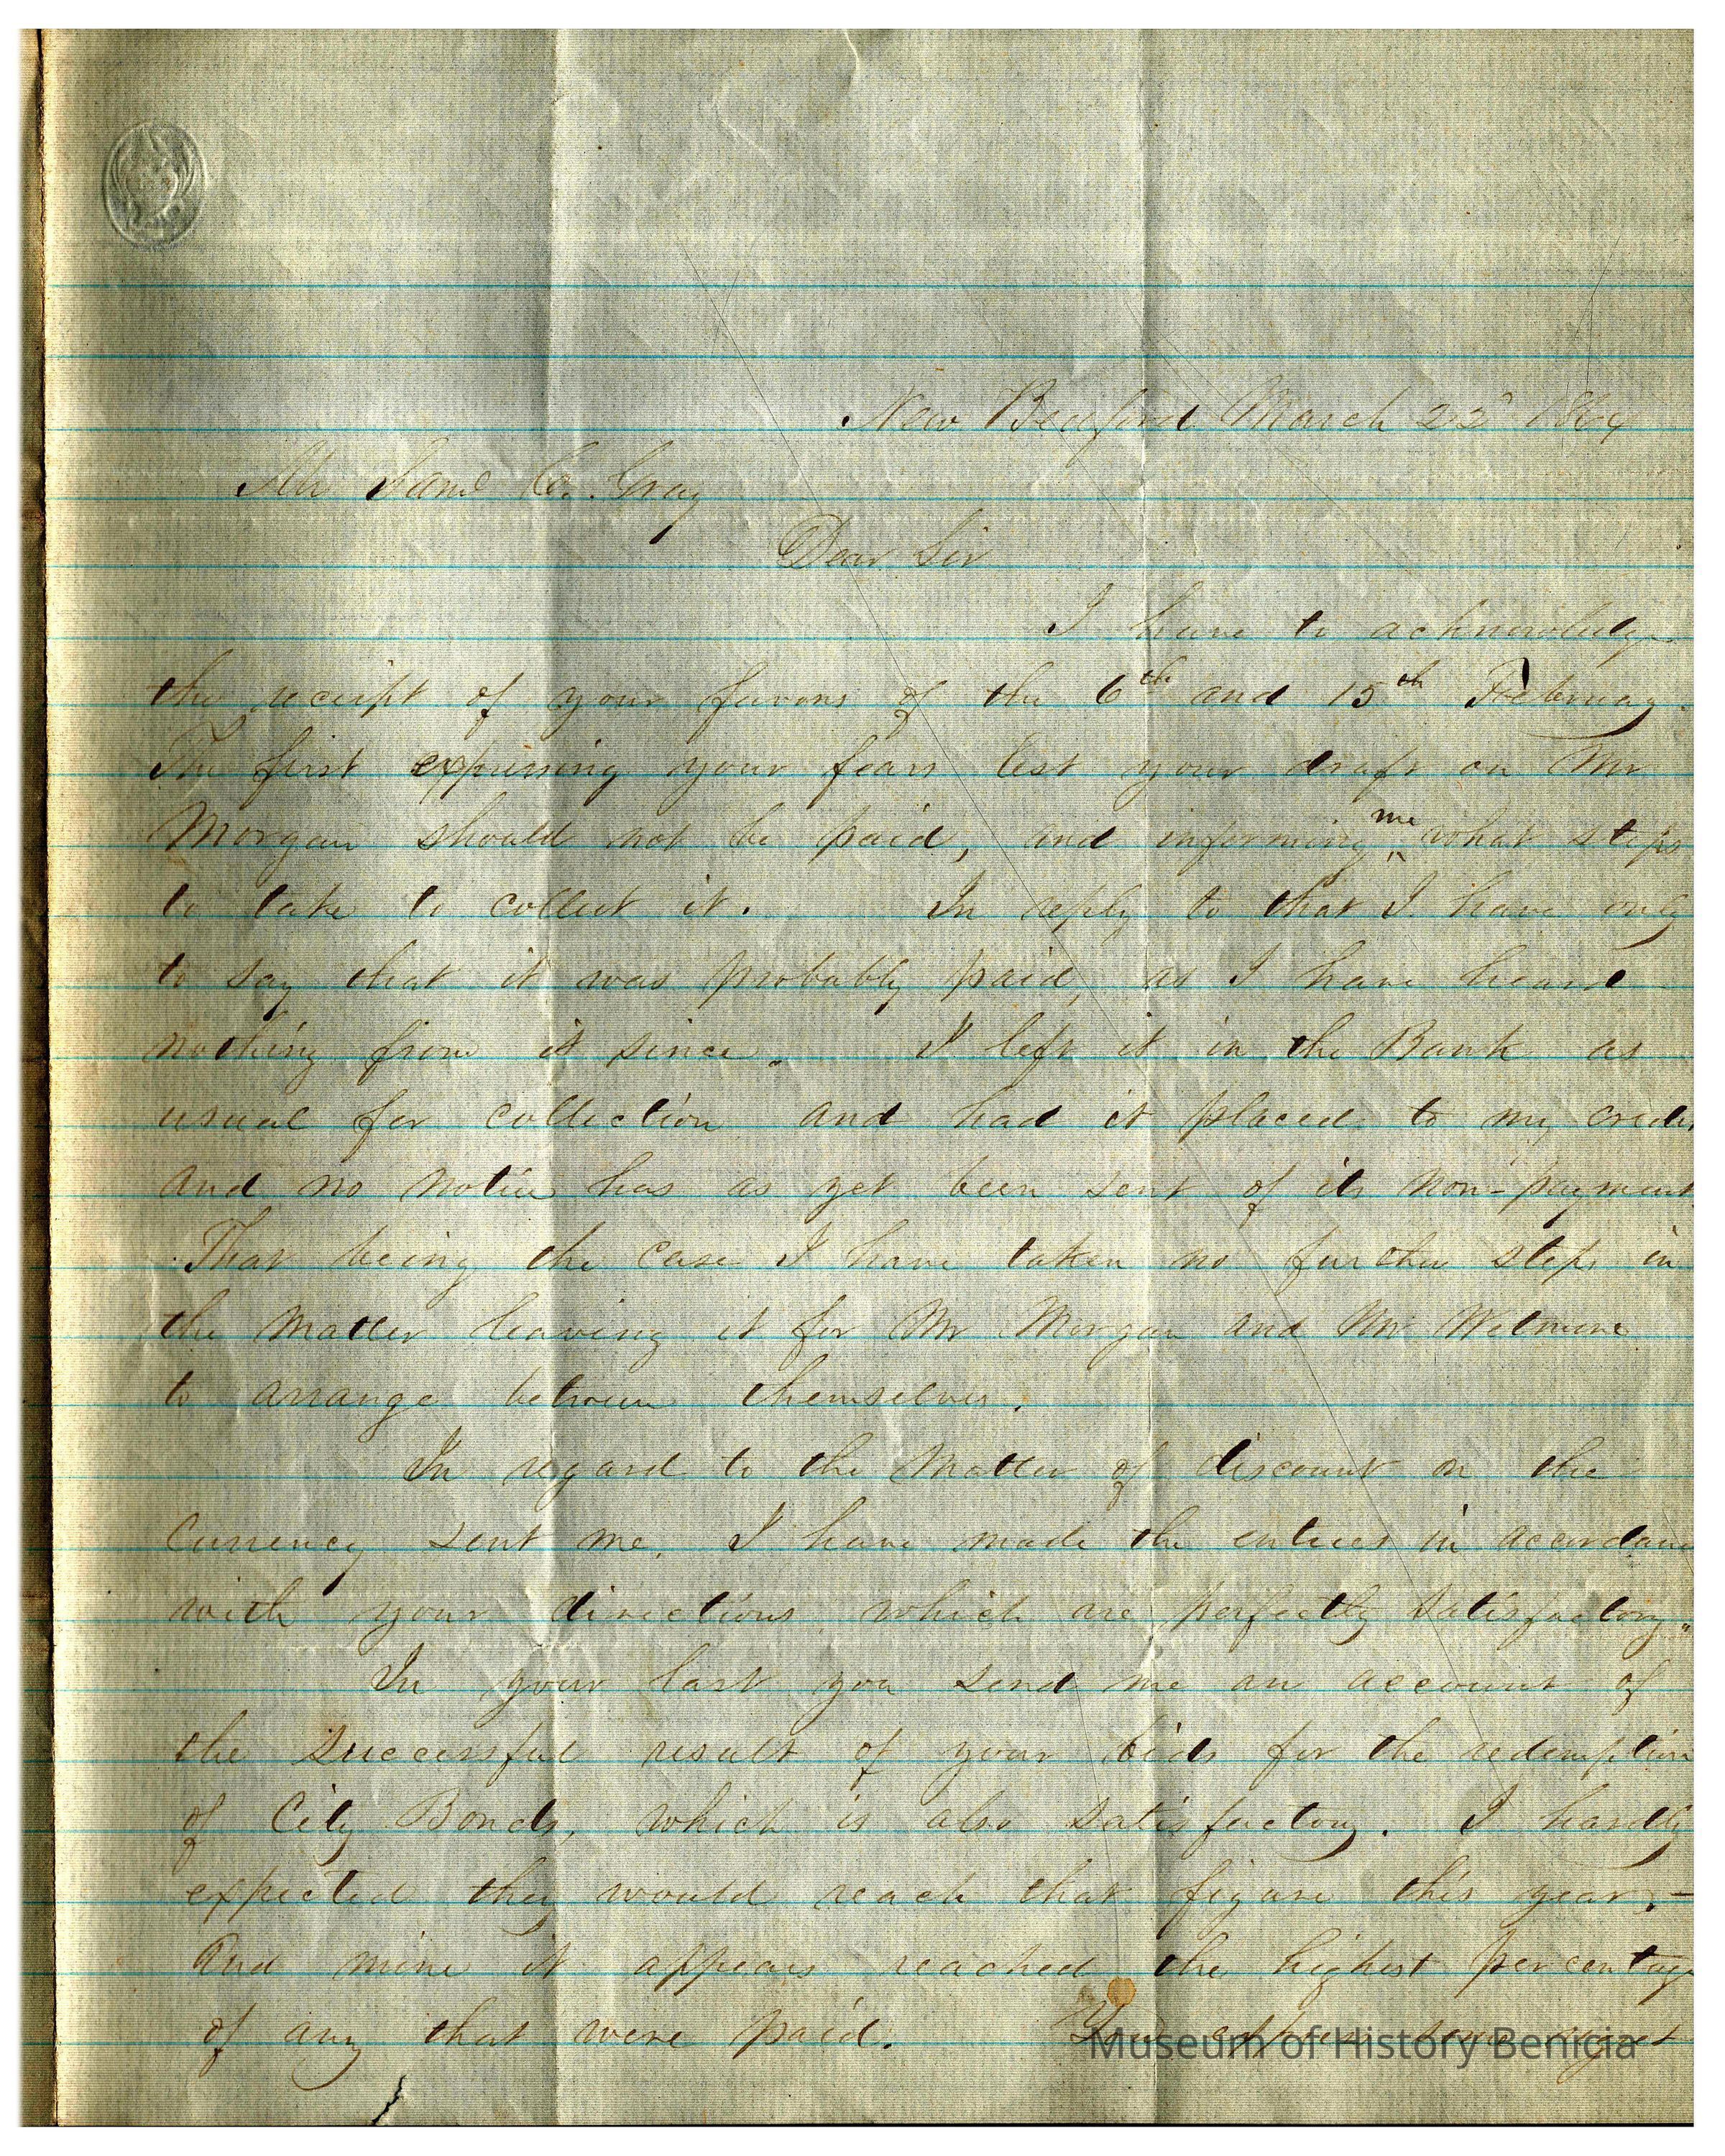 New Bedford March 22d 1864
Mr Saml C. Gray
Dear Sir
I have to acknowledge
the receipt of your favors of the 6th and 15th February.
The first expressing your fears lest your draft on Mr
Morgan should not be paid, and informing me what steps
to take to collect it. In reply to that I have only
to say that it was probably paid, as I have heard
nothing from it since. I left it in the Bank as
usual for collection and had it placed to my credi
and no notice has as yet been sent of its non-payment
That being the case I have taken no further steps in
the matter leaving it for Mr Morgan and Mr
to arrange between themselves.
In regard to the matter of discount on the
Currency sent me. I have made the entries in accordanc
with your directions which are perfectly satisfactory.
In your last you send me an account of
the successful result of your bids for the redemption
of City Bonds, which is also satisfactory. I hardly
expected they would reach that figure this year.-
And mine it appears reached the highest percentage
of any that were paid. You express some regret
Museum of History Benicia